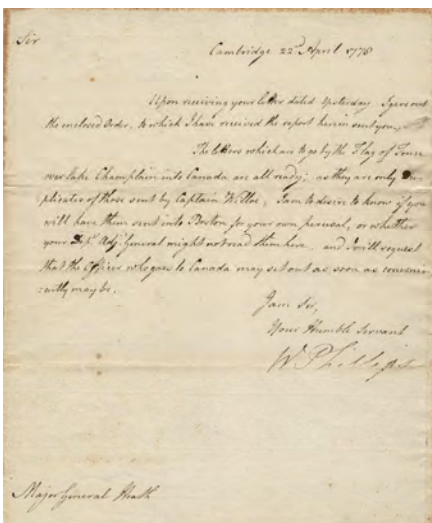 Sir
Cambridge 22d April 1778
Upon receiving your letter dated Yesterday I gave out
the enclosed Order, to which I have received the report herein sent you,
The letters which are to go by the Flag of Truce
over lake Champlain into Canada are all ready; as they are only Du-
plicates of those sent by Captain Willoe, I am to desire to know if you
will have them sent into Boston for your own perusal, or whether
your Adj: General might not read them here and I will request
that the Officer who goes to Canada may set out as soon as conveni-
:ently may be.
I am Sir,
Your Humble Servant
W Phillips
Major General Heath